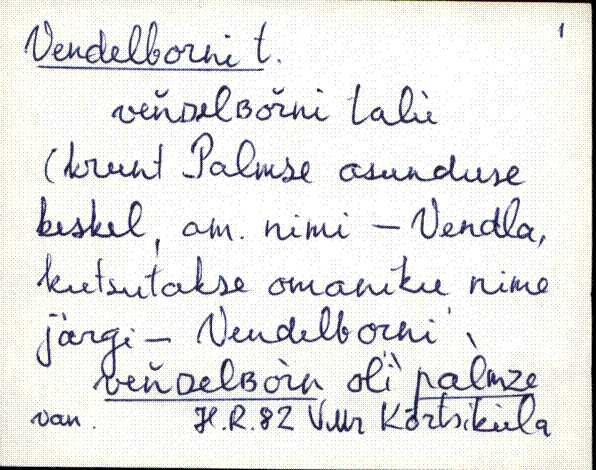 1
Vendelborni t.
veňDelBořni talu
(krunt Palmse asunduse
keskel, am. nimi – Vendla,
kutsutakse omaniku nime
järgi – Vendelborni
veňDelBòrn oli palmze
van. H.R.82 VMr Kõrtsiküla